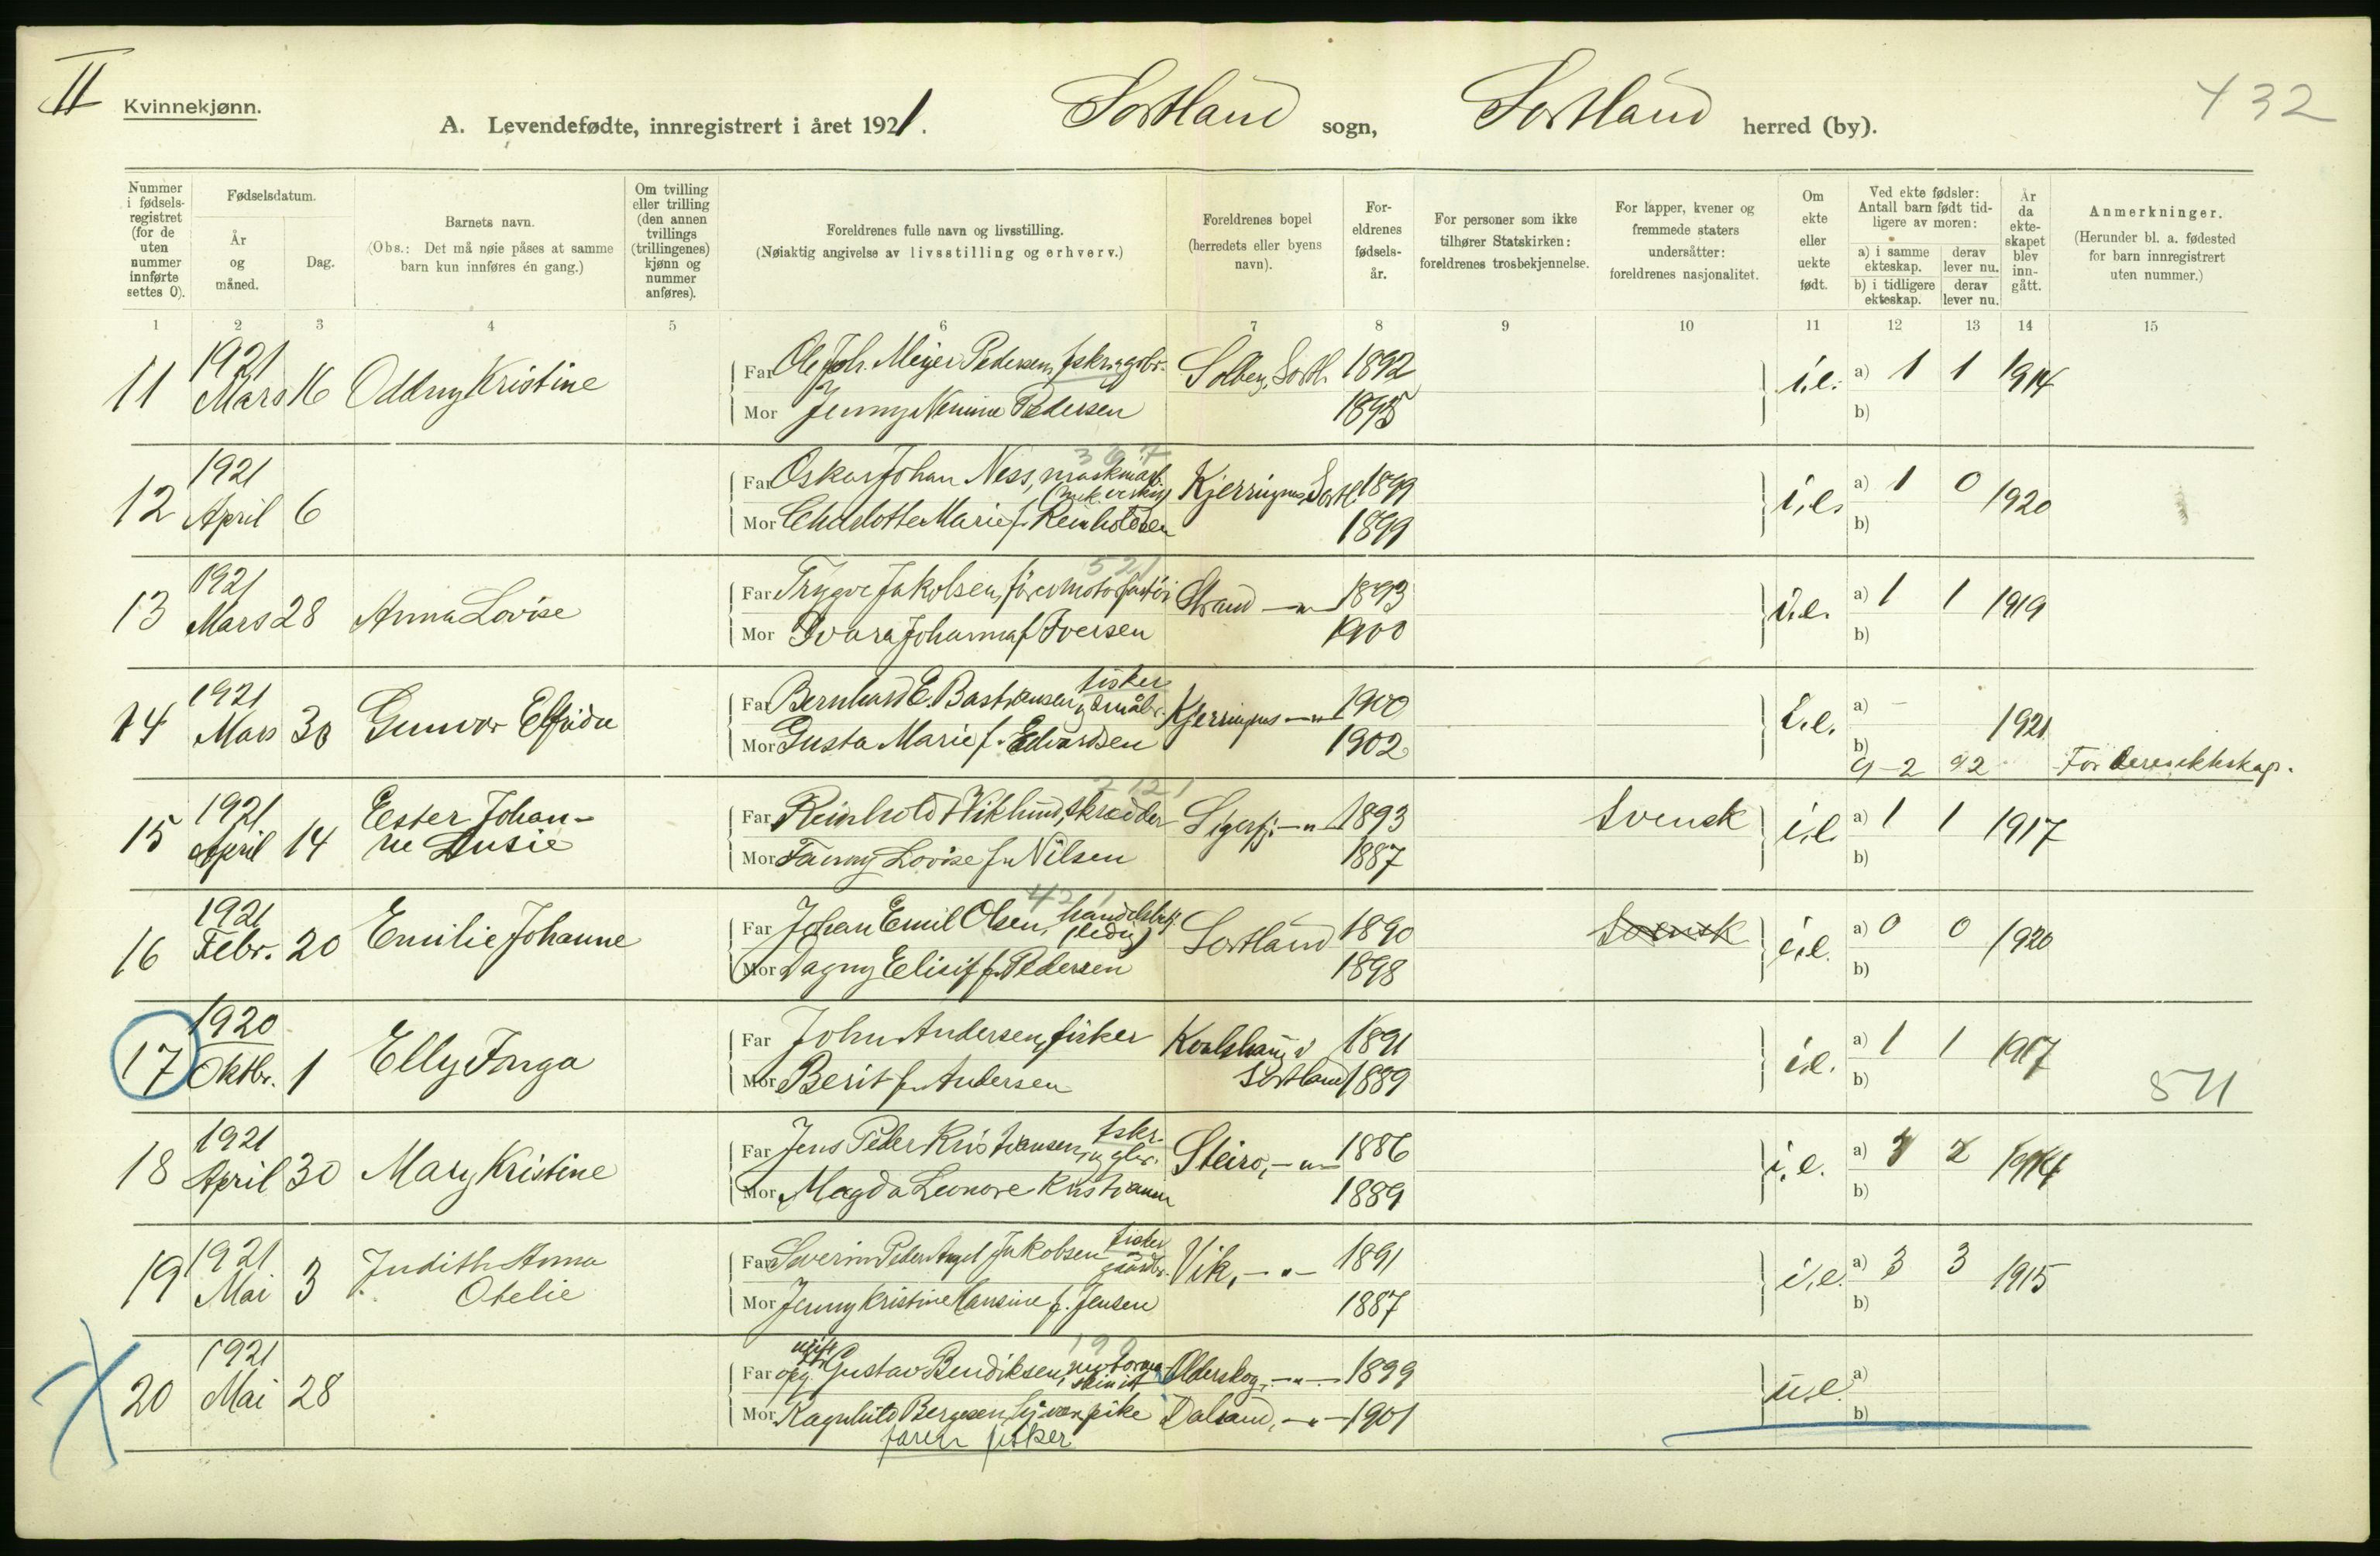 II
Kvinnekjønn.
A. Levendefødte, innregistrert i året 1921. Sortland sogn, Sortland herred (by).
432
Nummer i fødsels-registret (for de uten nummer innførte settes 0).
Fødselsdatum.
År og måned.
Dag.
Barnets navn.
(Obs.: Det må nøie påses at samme barn kun innføres én gang.)
Om tvilling eller trilling (den annen tvillings (trillingenes) kjønn og nummer anføres).
Foreldrenes fulle navn og livsstilling.
(Nøiaktig angivelse av livsstilling og erhverv.)
Foreldrenes bopel (herredets eller byens navn).
For-eldrenes fødsels-år.
For personer som ikke tilhører Statskirken: foreldrenes trosbekjennelse.
For lapper, kvener og fremmede staters undersåtter: foreldrenes nasjonalitet.
Om ekte eller uekte født.
Ved ekte fødsler: Antall barn født tid-ligere av moren:
a) i samme ekteskap.
derav lever nu.
b) i tidligere ekteskap.
derav lever nu.
År da ekte-skapet blev inn-gått.
Anmerkninger.
(Herunder bl. a. fødested for barn innregistrert uten nummer.)
1 2 3 4 5 6 7 8 9 10 11 12 13 14 15
11 1921 Mars 16 Oddny Kristine
Far Ole Joh. Meyer Pedersen, fskr. og gbr. Solberg, Sortl. 1892 i.e. a) 1 1 1914
Mor Jenny Nerine Pedersen 1895 b)
367
12 1921 April 6
Far Oskar Johan Ness, Kjerringnes, Sortl. 1899 i.e. a) 1 0 1920
Mor Charlotte Marie f. Reinholdsen 1899 b)
521
13 1921 Mars 28 Anna Lovise
Far Trygve Jakobsen, Strand —"— 1893 i.e. a) 1 1 1919
Mor Ivara Johanna f. Iversen 1900 b)
14 1921 Mars 30 Gunvor Elfrida
Far Bernhard E. Bastiansen, fisker og småbr. Kjerringnes —"— 1900 i.e. a) — 1921
Mor Gusta Marie f. Edvardsen 1902 b)
2121
15 1921 April 14 Ester Johan-
ne Lusie
Far Reinhold Wiklund, skredder Sigerfj. —"— 1893 Svensk i.e. a) 1 1 1917
Mor Fanny Lovise f. Nilsen 1887 b)
421
16 1921 Febr. 20 Emilie Johanne
Far Johan Emil Olsen, handelsbetj. (ledig) Sortland 1890 Svensk i.e. a) 0 0 1920
Mor Dagny Elisif f. Pedersen 1898 b)
17 1920 Oktbr. 1 Elly Inga
Far John Andersen, fisker 1891 i.e. a) 1 1 1917
Mor Berit f. Andersen Sortland 1889 b)
511
18 1921 April 30 Mary Kristine
Far Jens Peder Kristiansen, fskr. og gbr. Steiro, —"— 1886 i.e. a) 3 2 1914
Mor Magda Leonore Kristiansen 1889 b)
19 1921 Mai 3 Judith Anna
Otelie
Far Severin Peder Angel Jakobsen fisker gaardbr. Vik, —"— 1891 i.e. a) 3 3 1915
Mor Jenny Kristine Hansine f. Jensen 1887 b)
20 1921 Mai 28
Far opg. Gustav Bendiksen, motormaskinist Olderskog, —"— 1899 u.e. a)
Mor Ragnhild Bergesen, pike Dalsand, —"— 1901 b)
faren fisker